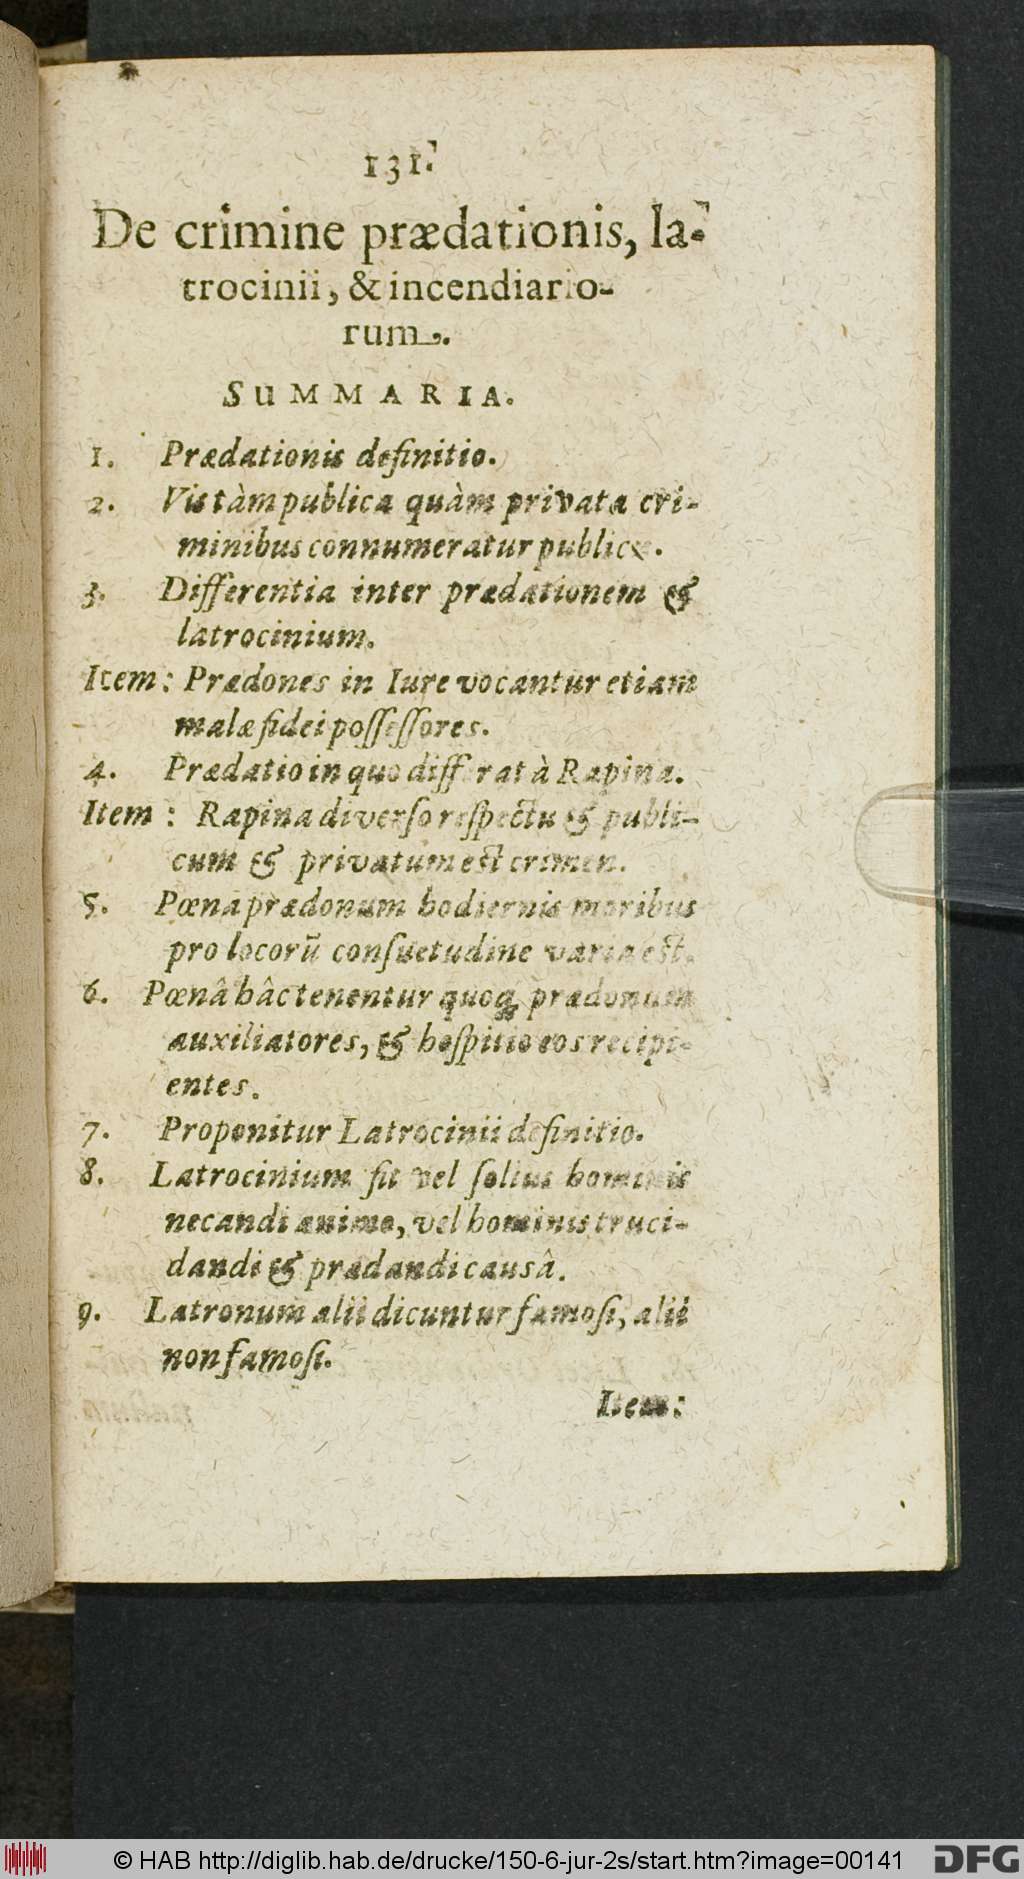 131.
De crimine prædationis, la-
trocinii, & incendiario-
rum.
SUMMARIA.
1. Prædationis definitio.
2. Vis tàm publica quàm privata cri-
minibus connumeratur publicæ.
3. Differentia inter prædationem &
latrocinium.
Item: Prædones in Iure vocantur etiam
malæ fidei poſſeſſores.
4. Prædatio in quo differat à Rapina.
Item: Rapina diverſo reſpectu & publi-
cum & privatum est crimen.
5. Pœna prædonum hodiernis moribus
pro locorū conſuetudine varia est.
6. Pœnâ hâc tenentur quoq; prædonum
auxiliatores, & hoſpitio eos recipi-
entes.
7. Proponitur Latrocinii definitio.
8. Latrocinium fit vel ſolius hominis
necandi animo, vel hominis truci-
dandi & prædandi causâ.
9. Latronum alii dicuntur famoſi, alii
non famoſi.
Item:
© HAB http://diglib.hab.de/drucke/150-6-jur-2s/start.htm?image=00141
DFG